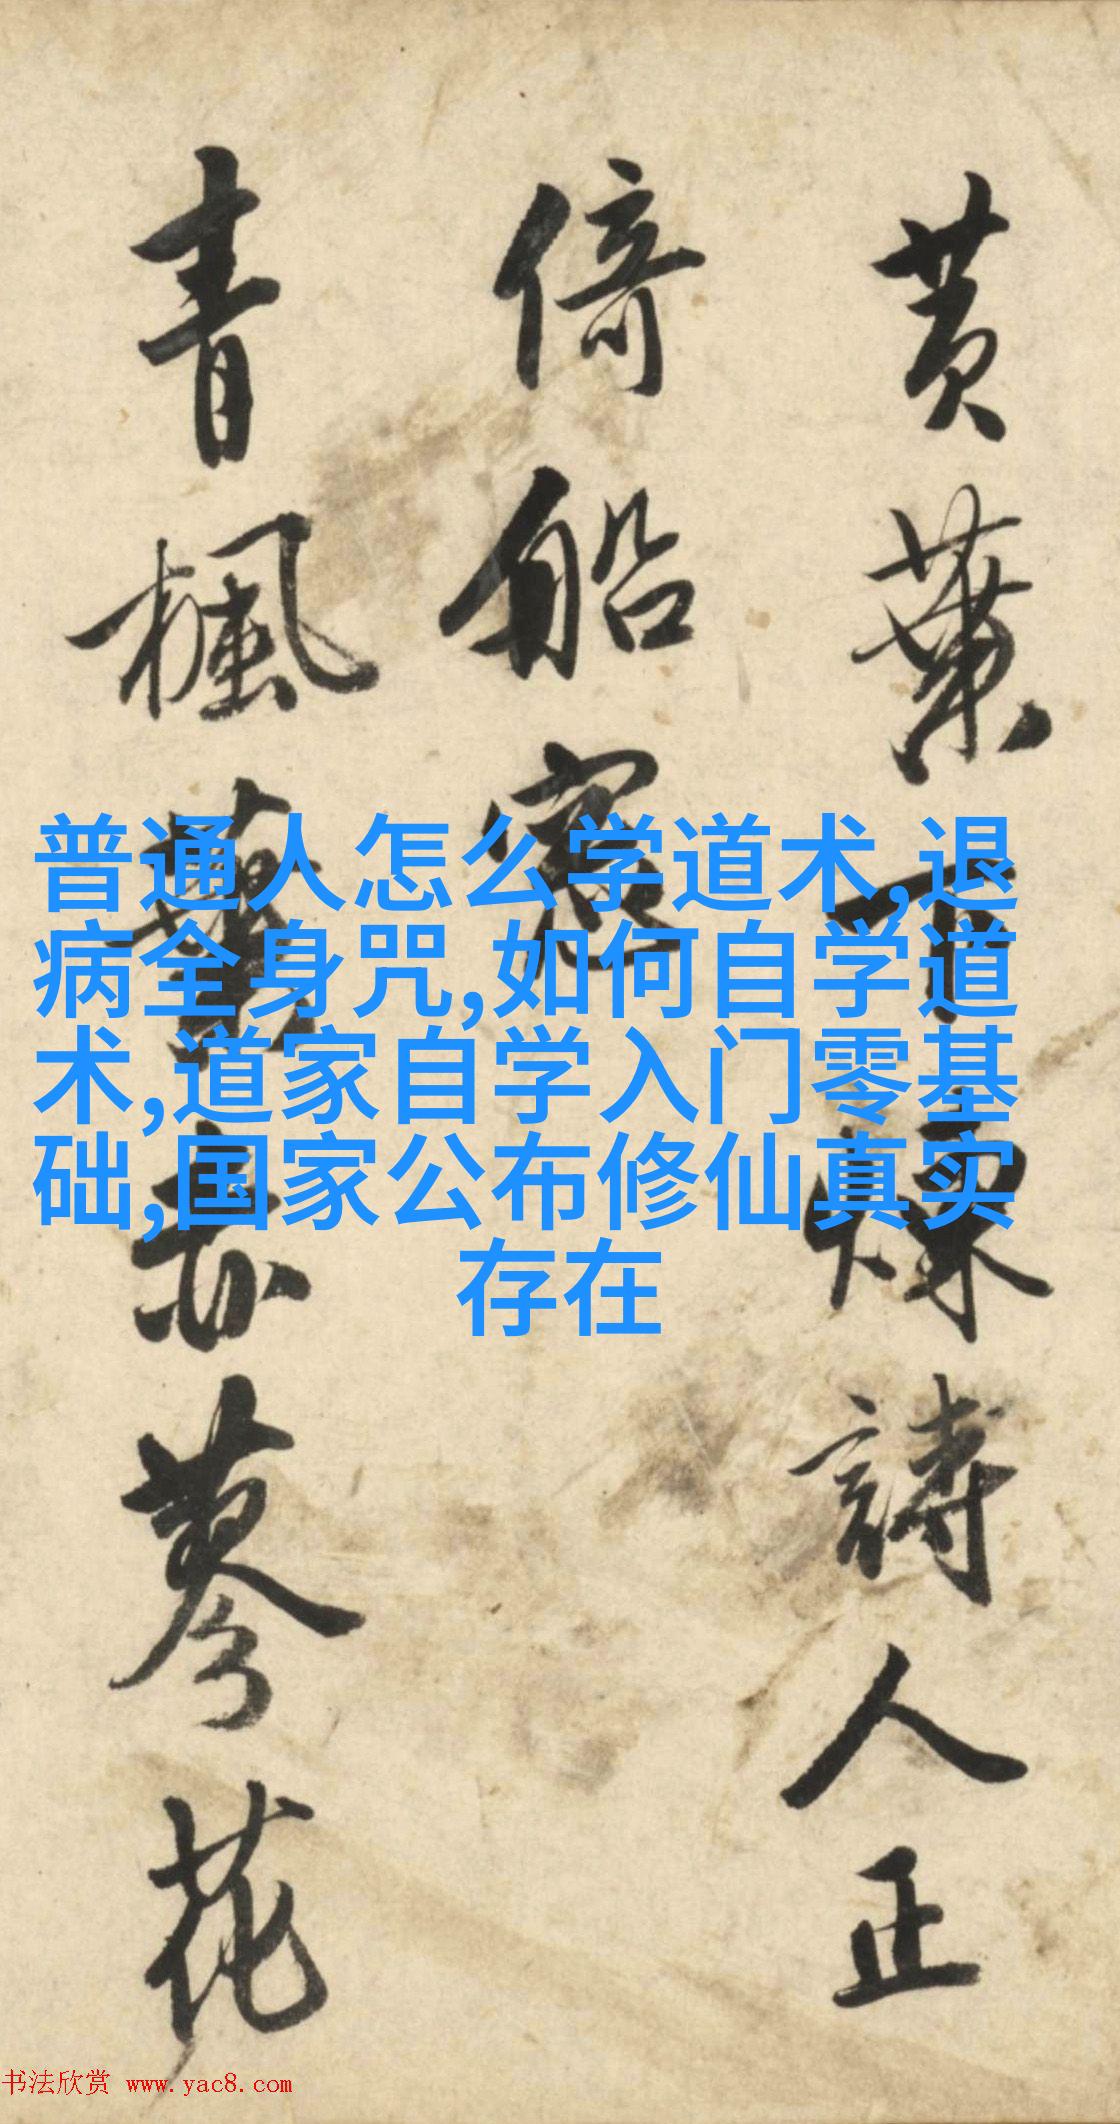 黄葉詩人正
倚船窓
青楓赤蓼花
普通人怎么学道术,退
病全身咒,如何自学道
术,道家自学入门零基
础,国家公布修仙真实
存在
书法欣赏 www.yac8.com